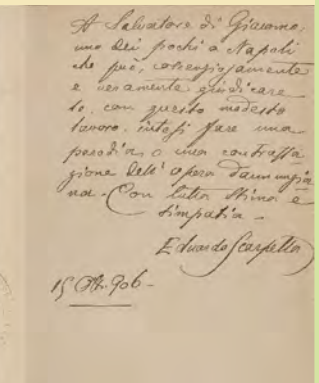 A Salvatore di Giacomo,
uno dei pochi a Napoli
che può, coraggiosamente
e veramente giudicare
se, con questo modesto
lavoro, intesi fare una
parodia o una contraffa
zione dell'opera dannunzia
na - Con tutta stima e
simpatia -
Eduardo Scarpetta
15 Ott. 906 -